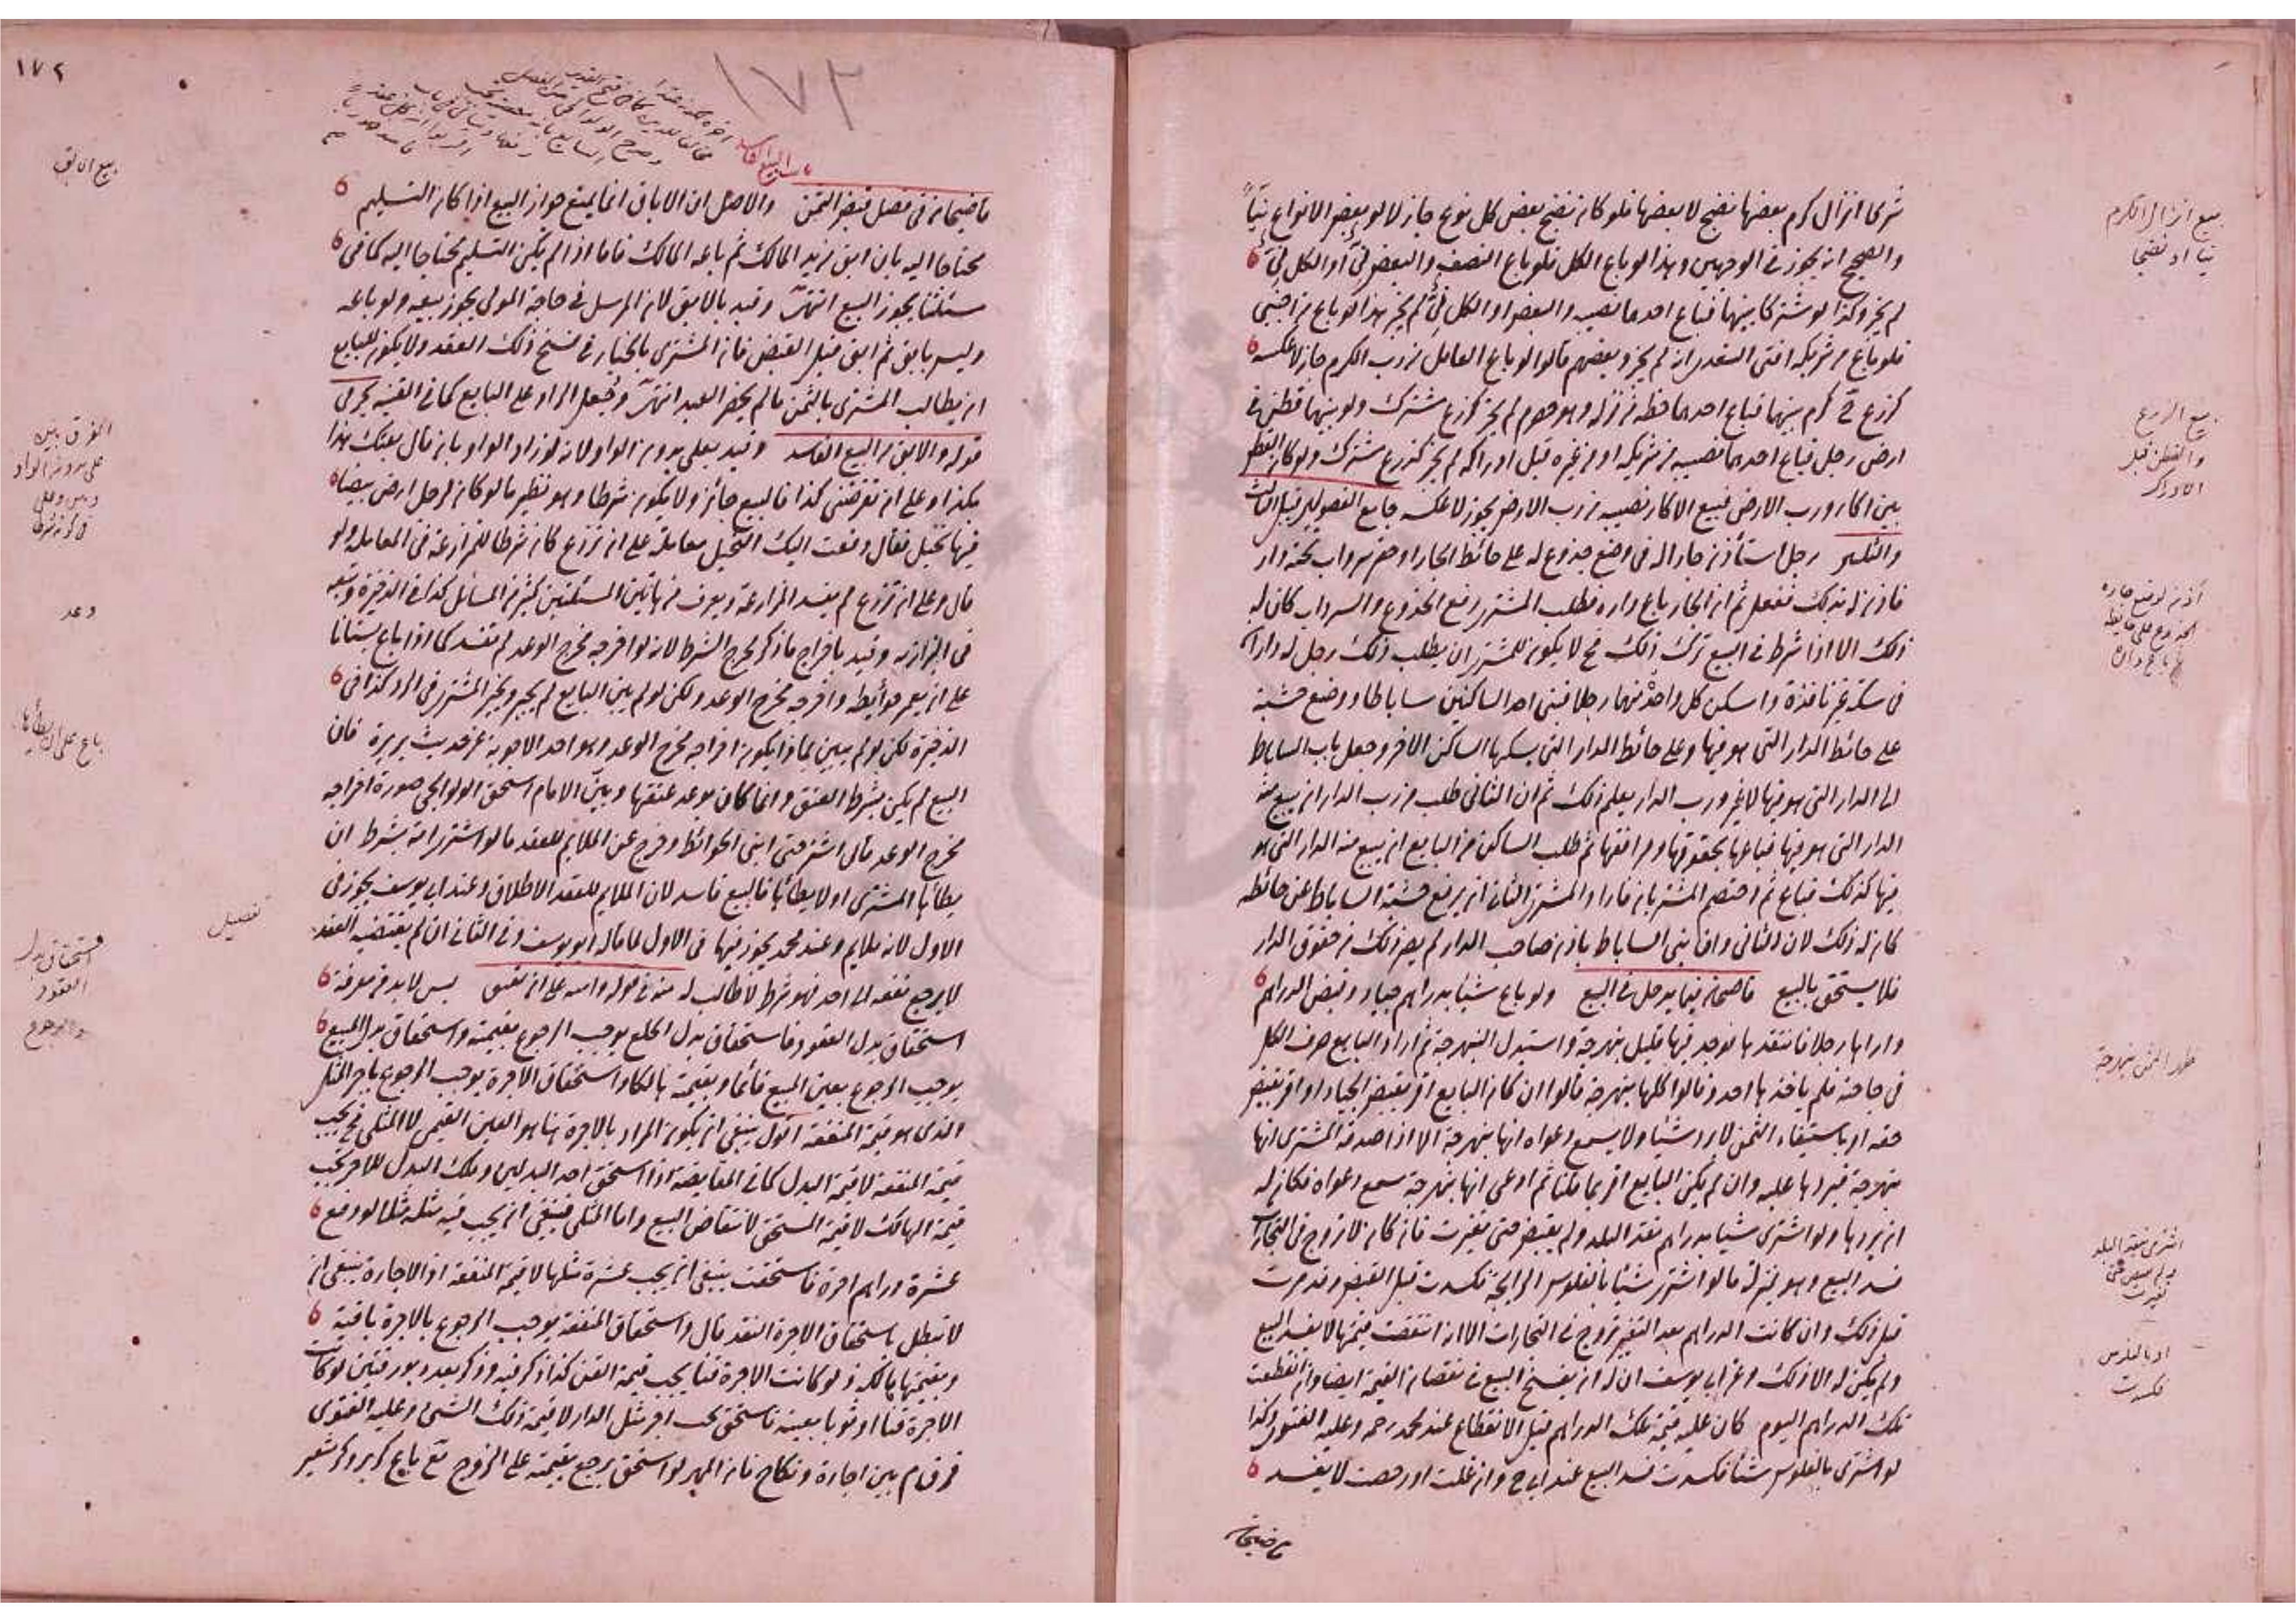 شرى انزال كرم بعضها نضج لا بعضها فلو كان نضج بعض كل نوع جاز لا لو بعض الانواع نيأ
والصحيح انه يجوز في الوجهين وهذا لو باع الكل فلو باع النصف والبعض نئ او الكل نئ
لم يجز وكذا لو مشتركا بينهما فباع احدهما نصيبه والبعض او الكل نئ لم يجز هذا لو باع من اجنبي
فلو باع من شريكه افتى السغدي انه لم يجز وبعضهم قالوا لو باع العامل من رب الكرم جاز لا عكسه
كزرع في كرم بينهما فباع احدهما حظه من نزله وهو حصرم لم يجز كزرع مشترك ولو بينهما قطن في
ارض رجل فباع احدهما نصيبه من شريكه او من غيره قبل ادراكه لم يجز كزرع مشترك ولو كان القطن
بين اكار ورب الارض فبيع الاكار نصيبه من رب الارض يجوز لا عكسه جامع الفصولين قبيل الثالث
والثلثين رجل استأذن جارا له في وضع جذوع له على حائط الجار او حفر سرداب تحت داره
فاذن له بذلك ففعل ثم ان الجار باع داره فطلب المشتري رفع الجذوع والسرداب كان له
ذلك الا اذا شرط في البيع ترك ذلك فح لا يكون للمشتري ان يطلب ذلك رجل له داران
في سكة غير نافذة واسكن كل واحد منهما رجلا فبنى احد الساكنين ساباطا ووضع خشبة
على حائط الدار التي هو فيها وعلى حائط الدار التي يسكنها الساكن الاخر وجعل باب الساباط
الى الدار التي هو فيها لا غير ورب الدار يعلم ذلك ثم ان الثاني طلب من رب الدار ان يبيع منه
الدار التي هو فيها فباعها بحقوقها ومرافقها ثم طلب الساكن من البايع ان يبيع منه الدار التي هو
فيها كذلك فباع ثم اختصم المشتريان فاراد المشتري الثاني ان يرفع خشبة الساباط عن حائطه
كان له ذلك لان الثاني وان بنى الساباط باذن صاحب الدار لم يصر ذلك من حقوق الدار
فلا يستحق بالبيع قاضيخان فيما يدخل في البيع ولو باع شيئا بدراهم جياد وقبض الدراهم
واراها رجلا فانتقدها فوجد فيها قليل نبهرجة واستبدل النبهرجة ثم اراد البايع صرف الكل
في حاجته فلم يأخذها احد وقالوا كلها نبهرجة قالوا ان كان البايع اقر بقبض الجياد او اقر بقبض
حقه او باستيفاء الثمن لا يرد شيئا ولا يسمع دعواه انها نبهرجة الا اذا صدقه المشتري انها
نبهرجة فيردها عليه وان لم يكن البايع اقر بما قلنا ثم ادعى انها نبهرجة سمع دعواه فكان له
ان يردها ولو اشترى شيئا بدراهم نقد البلد ولم يقبض حتى تغيرت فان كان لا تروج في التجارات
فسد البيع وهو بمنزلة ما لو اشترى شيئا بالفلوس الرايجة فكسدت قبل القبض وقد مرت
قبل ذلك وان كانت الدراهم بعد التغير تروج في التجارات الا انه انتقصت قيمتها لا يفسد البيع
ولم يكن له الا ذلك وعن ابي يوسف ان له ان يفسخ البيع في نقصان القيمة ايضا وان انقطعت
تلك الدراهم اليوم كان عليه قيمة تلك الدراهم قبل الانقطاع عند محمد رحمه وعليه الفتوى وكذا
لو اشترى بالفلوس شيئا فكسدت فسد البيع عند ابي ح وان غلت او رخصت لا يفسد
قاضيخان
بيع انزال الكرم
نيا او نضيجا
بيع الزرع
والقطن قبل
الادراك
اذن لوضع جاره
الجذوع على حائطه
ثم باع داره
ظهر الثمن نبهرجة
اشترى بنقد البلد
ولم يقبض حتى
تغيرت
او بالفلوس
فكسدت
١٧٢
١٧٢
باب البيع الفاسد
قاضيخان في فصل قبض الثمن والاصل ان الاباق انما يمنع جواز البيع اذا كان التسليم
محتاجا اليه بان ابق من يد المالك ثم باعه المالك فاما اذا لم يكن التسليم محتاجا اليه كما في
مسئلتنا يجوز البيع انتهى وقيد بالابق لان المرسل في حاجة المولى يجوز بيعه ولو باعه
وليس بابق ثم ابق قبل القبض فان المشتري بالخيار في فسخ ذلك العقد ولا يكون للبايع
ان يطالب المشتري بالثمن ما لم يحضر العبد انتهى وجعل الراد على البايع كما في القنية بحر في
قوله والابق من البيع الفاسد وقيد بعلى بدون الواو لانه لو زاد الواو بان قال بعتك هذا
بكذا وعلى ان تقرضني كذا فالبيع جائز ولا يكون شرطا وهو نظير ما لو كان لرجل ارض بيضاء
فيها نخيل فقال دفعت اليك النخيل معاملة على ان تزرع كان شرطا للمزارعة في المعاملة ولو
قال وعلى ان تزرع لم يفسد المزارعة ويعرف من هاتين المسئلتين كثير من المسائل كذا في الذخيرة وتبعه
في البزازية وقيد باخراج ما ذكر مخرج الشرط لانه لو اخرجه مخرج الوعد لم تفسد كما اذا باع بستانا
على ان يعمر حوائطه واخرجه مخرج الوعد ولكن لو لم يبن البايع لم يجبر ويخير المشتري في الرد كذا في
الذخيرة لكن لو لم يبين بماذا يكون اخراجه مخرج الوعد وهو احد الاجوبة عن حديث بريرة فان
البيع لم يكن بشرط العتق وانما كان بوعد عتقها وبين الامام اسحق الولوالجي صورة اخراجه
مخرج الوعد قال اشتر حتى ابني الحوائط وخرج عن الملايم للعقد ما لو اشترى امة بشرط ان
يطأها المشتري او لا يطأها فالبيع فاسد لان الملايم للعقد الاطلاق وعند ابي يوسف يجوز في
الاول لانه ملايم وعند محمد يجوز فيهما في الاول لما قاله ابو يوسف وفي الثاني ان لم يقتضيه العقد
لا يرجع نفعه الى احد فهو شرط لا طالب له منه في قوله وامة على ان تعتق بس لا بد من معرفة
استحقاق بدل العقود فاستحقاق بدل الخلع يوجب الرجوع بقيمته واستحقاق بدل المبيع
يوجب الرجوع بعين المبيع قائما وبقيمته هالكا واستحقاق الاجرة يوجب الرجوع باجر المثل
الذي هو قيمة المنفعة اقول ينبغي ان يكون المراد بالاجرة هنا هو العين القيمي لا المثلي فح يجب
قيمة المنفعة لا قيمة البدل كما في المقايضة اذا استحق احد البدلين وهلك البدل الاخر تجب
قيمة الهالك لا قيمة المستحق لانتقاض البيع واما المثلي فينبغي ان يجب فيه مثله مثلا لو دفع
عشرة دراهم اجرة فاستحقت ينبغي ان يجب عشرة مثلها لا قيمة المنفعة اذ الاجارة ينبغي ان
لا تبطل باستحقاق الاجرة النقد قال واستحقاق المنفعة يوجب الرجوع بالاجرة باقية
وبقيمتها هالكة ذ لو كانت الاجرة قنا يجب قيمة القن كذا ذكر فيه وذكر بعده بورقتين لو كانت
الاجرة قنا او ثوبا بعينه فاستحق يجب اجر مثل الدار لا قيمة ذلك الشئ وعليه الفتوى
فرق م بين اجارة ونكاح فان المهر لو استحق يرجع بقيمته على الزوج مع باع كر بر وكر شعير
بيع الابق
الفرق بين
على بدون الواو
وبين وعلى
وعد
باع على ان يطأها
تفصيل
استحقاق بدل
العقود